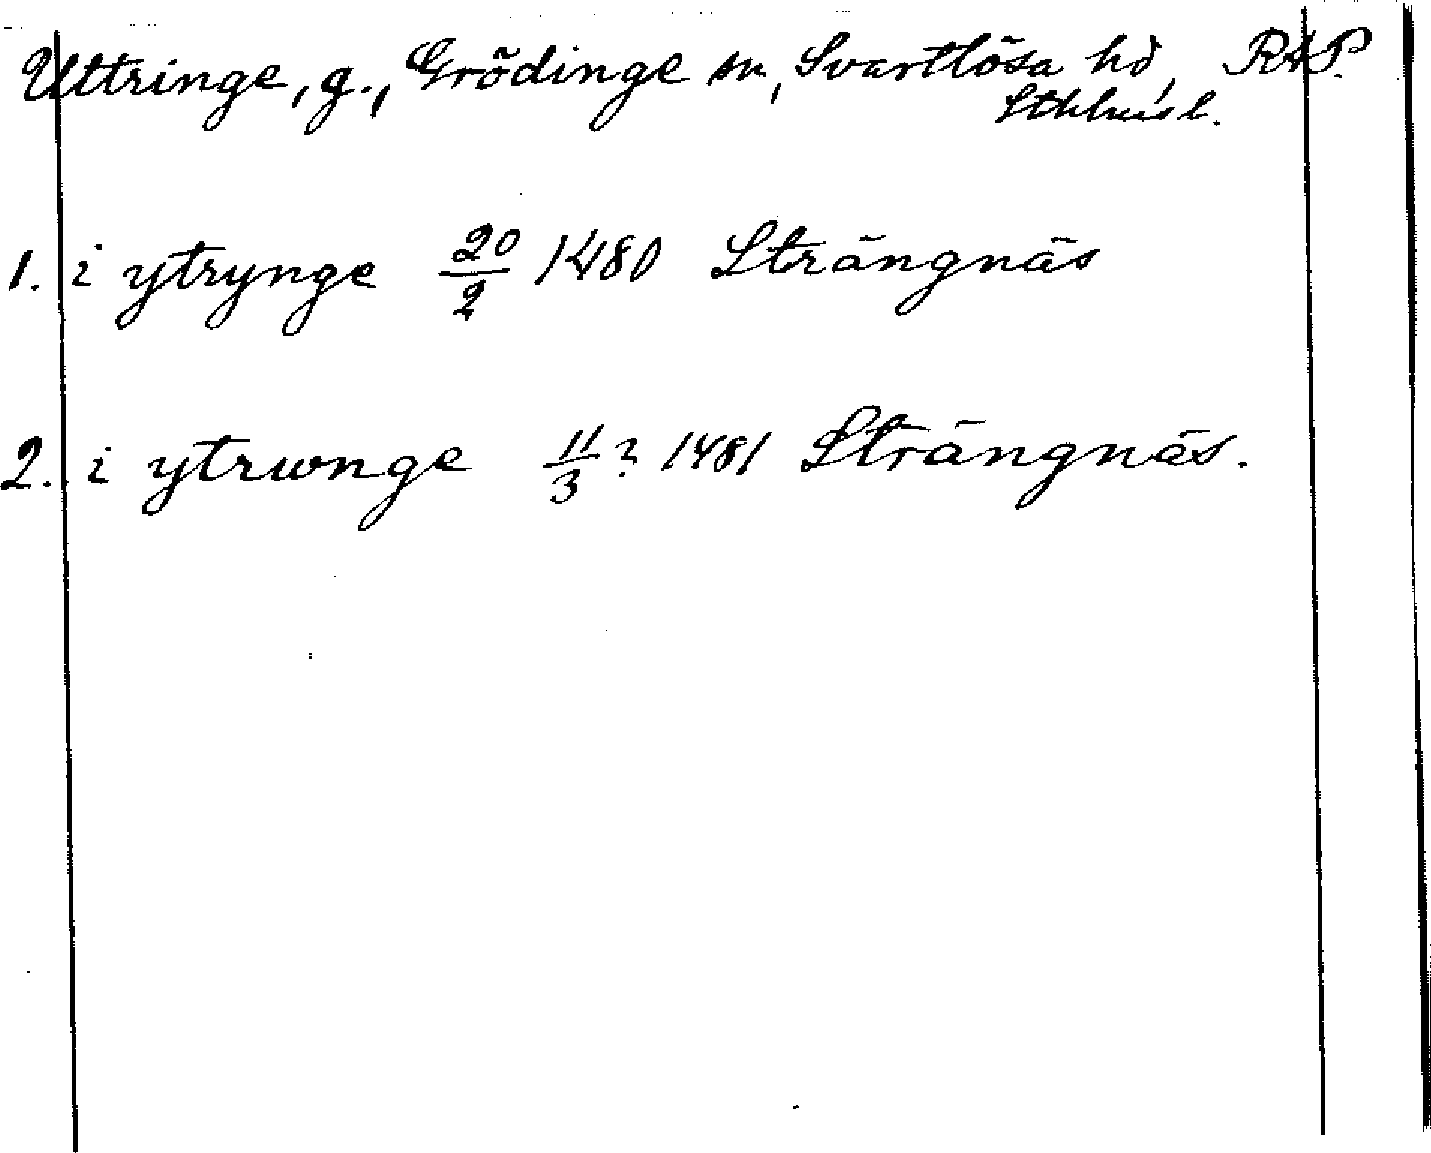 Uttringe, g., Grödinge sn, Svartlösa hd, RAP.
Sthlms l.
1. i ytrynge 20/2 1480 Strängnäs
2. i ytrwnge 11/3? 1481 Strängnäs.